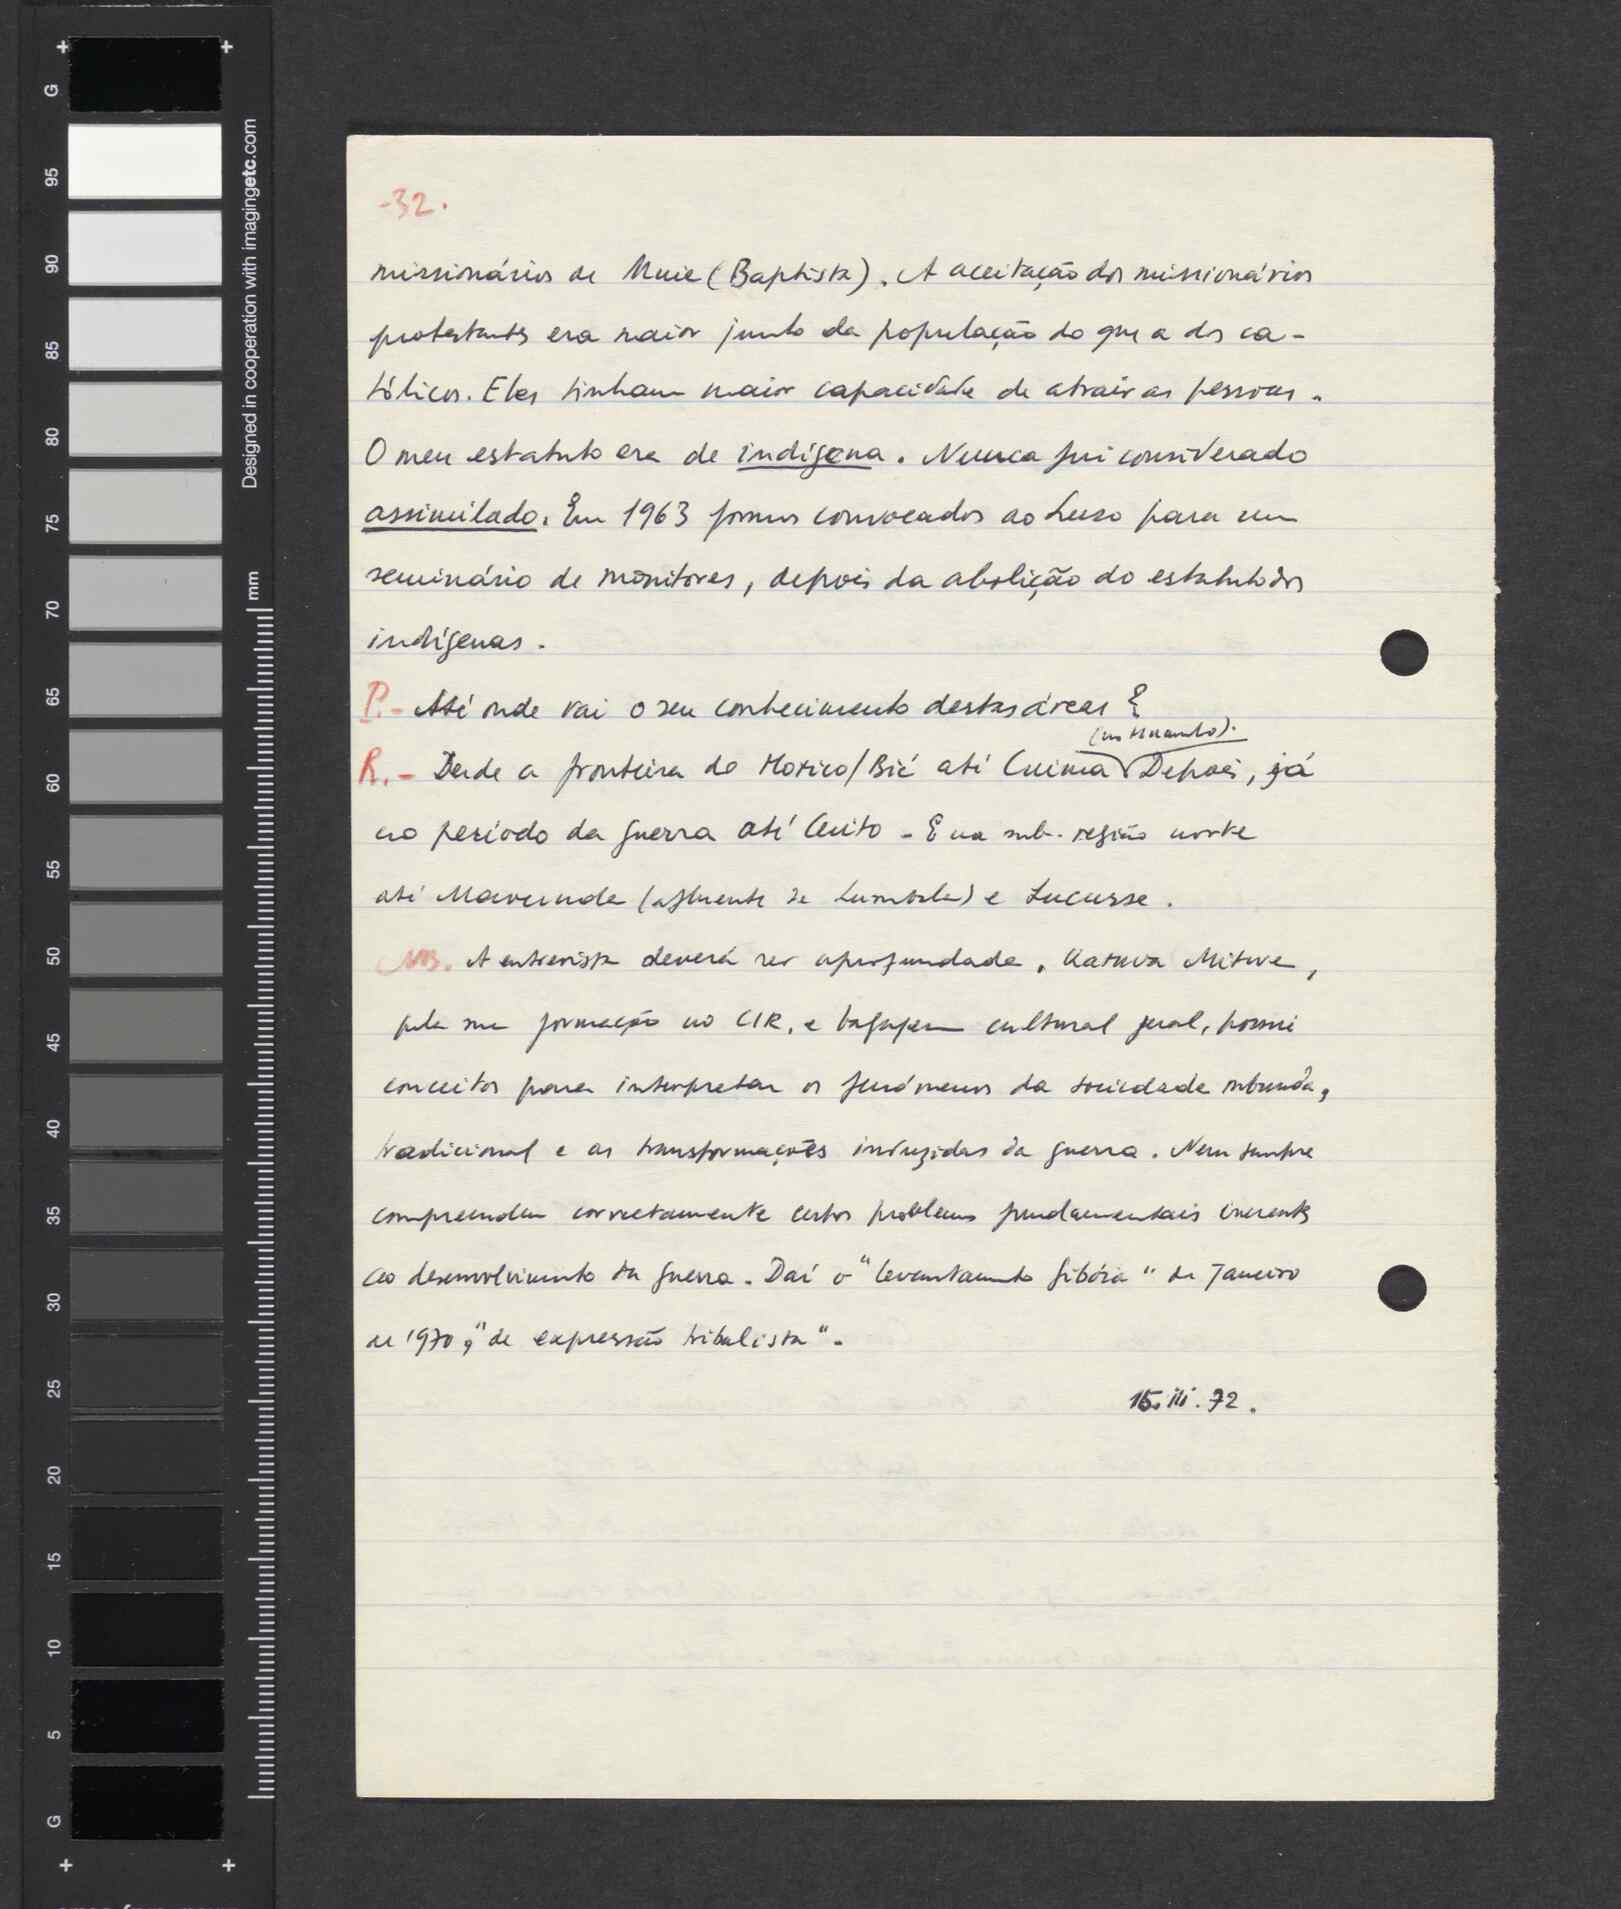 -32.
missionários de Muie (Baptista). A aceitação dos missionários
protestantes era maior junto da população do que a dos ca-
tólicos. Eles tinham maior capacidade de atrair as pessoas.
O meu estatuto era de indígena. Nunca fui considerado
assimilado. Em 1963 fomos convocados ao Luso para um
seminário de monitores, depois da abolição do estatuto dos
indígenas.
P.- Até onde vai o seu conhecimento destas áreas?
(no Huambo).
R.- Desde a fronteira do Moxico/Bié até Cuima Depois, já
no período da guerra até Cuito - E na sub-região norte
até Mavunda (afluente de Lumbala) e Lucusse.
NB. A entrevista deverá ser aprofundada. Katuva Mitwe,
pela sua formação no CIR, e bagagem cultural geral, possui
conceitos para interpretar os fenómenos da sociedade mbunda,
tradicional e as transformações induzidas da guerra. Nem sempre
compreendeu correctamente certos problemas fundamentais inerentes
ao desenvolvimento da guerra. Daí o "levantamento Jibóia" de Janeiro
de 1970, "de expressão tribalista".
15.iii.72.
G
95
90
85
80
75
70
65
60
55
50
45
40
35
30
25
20
15
10
5
G
mm
Designed in cooperation with imagingetc.com